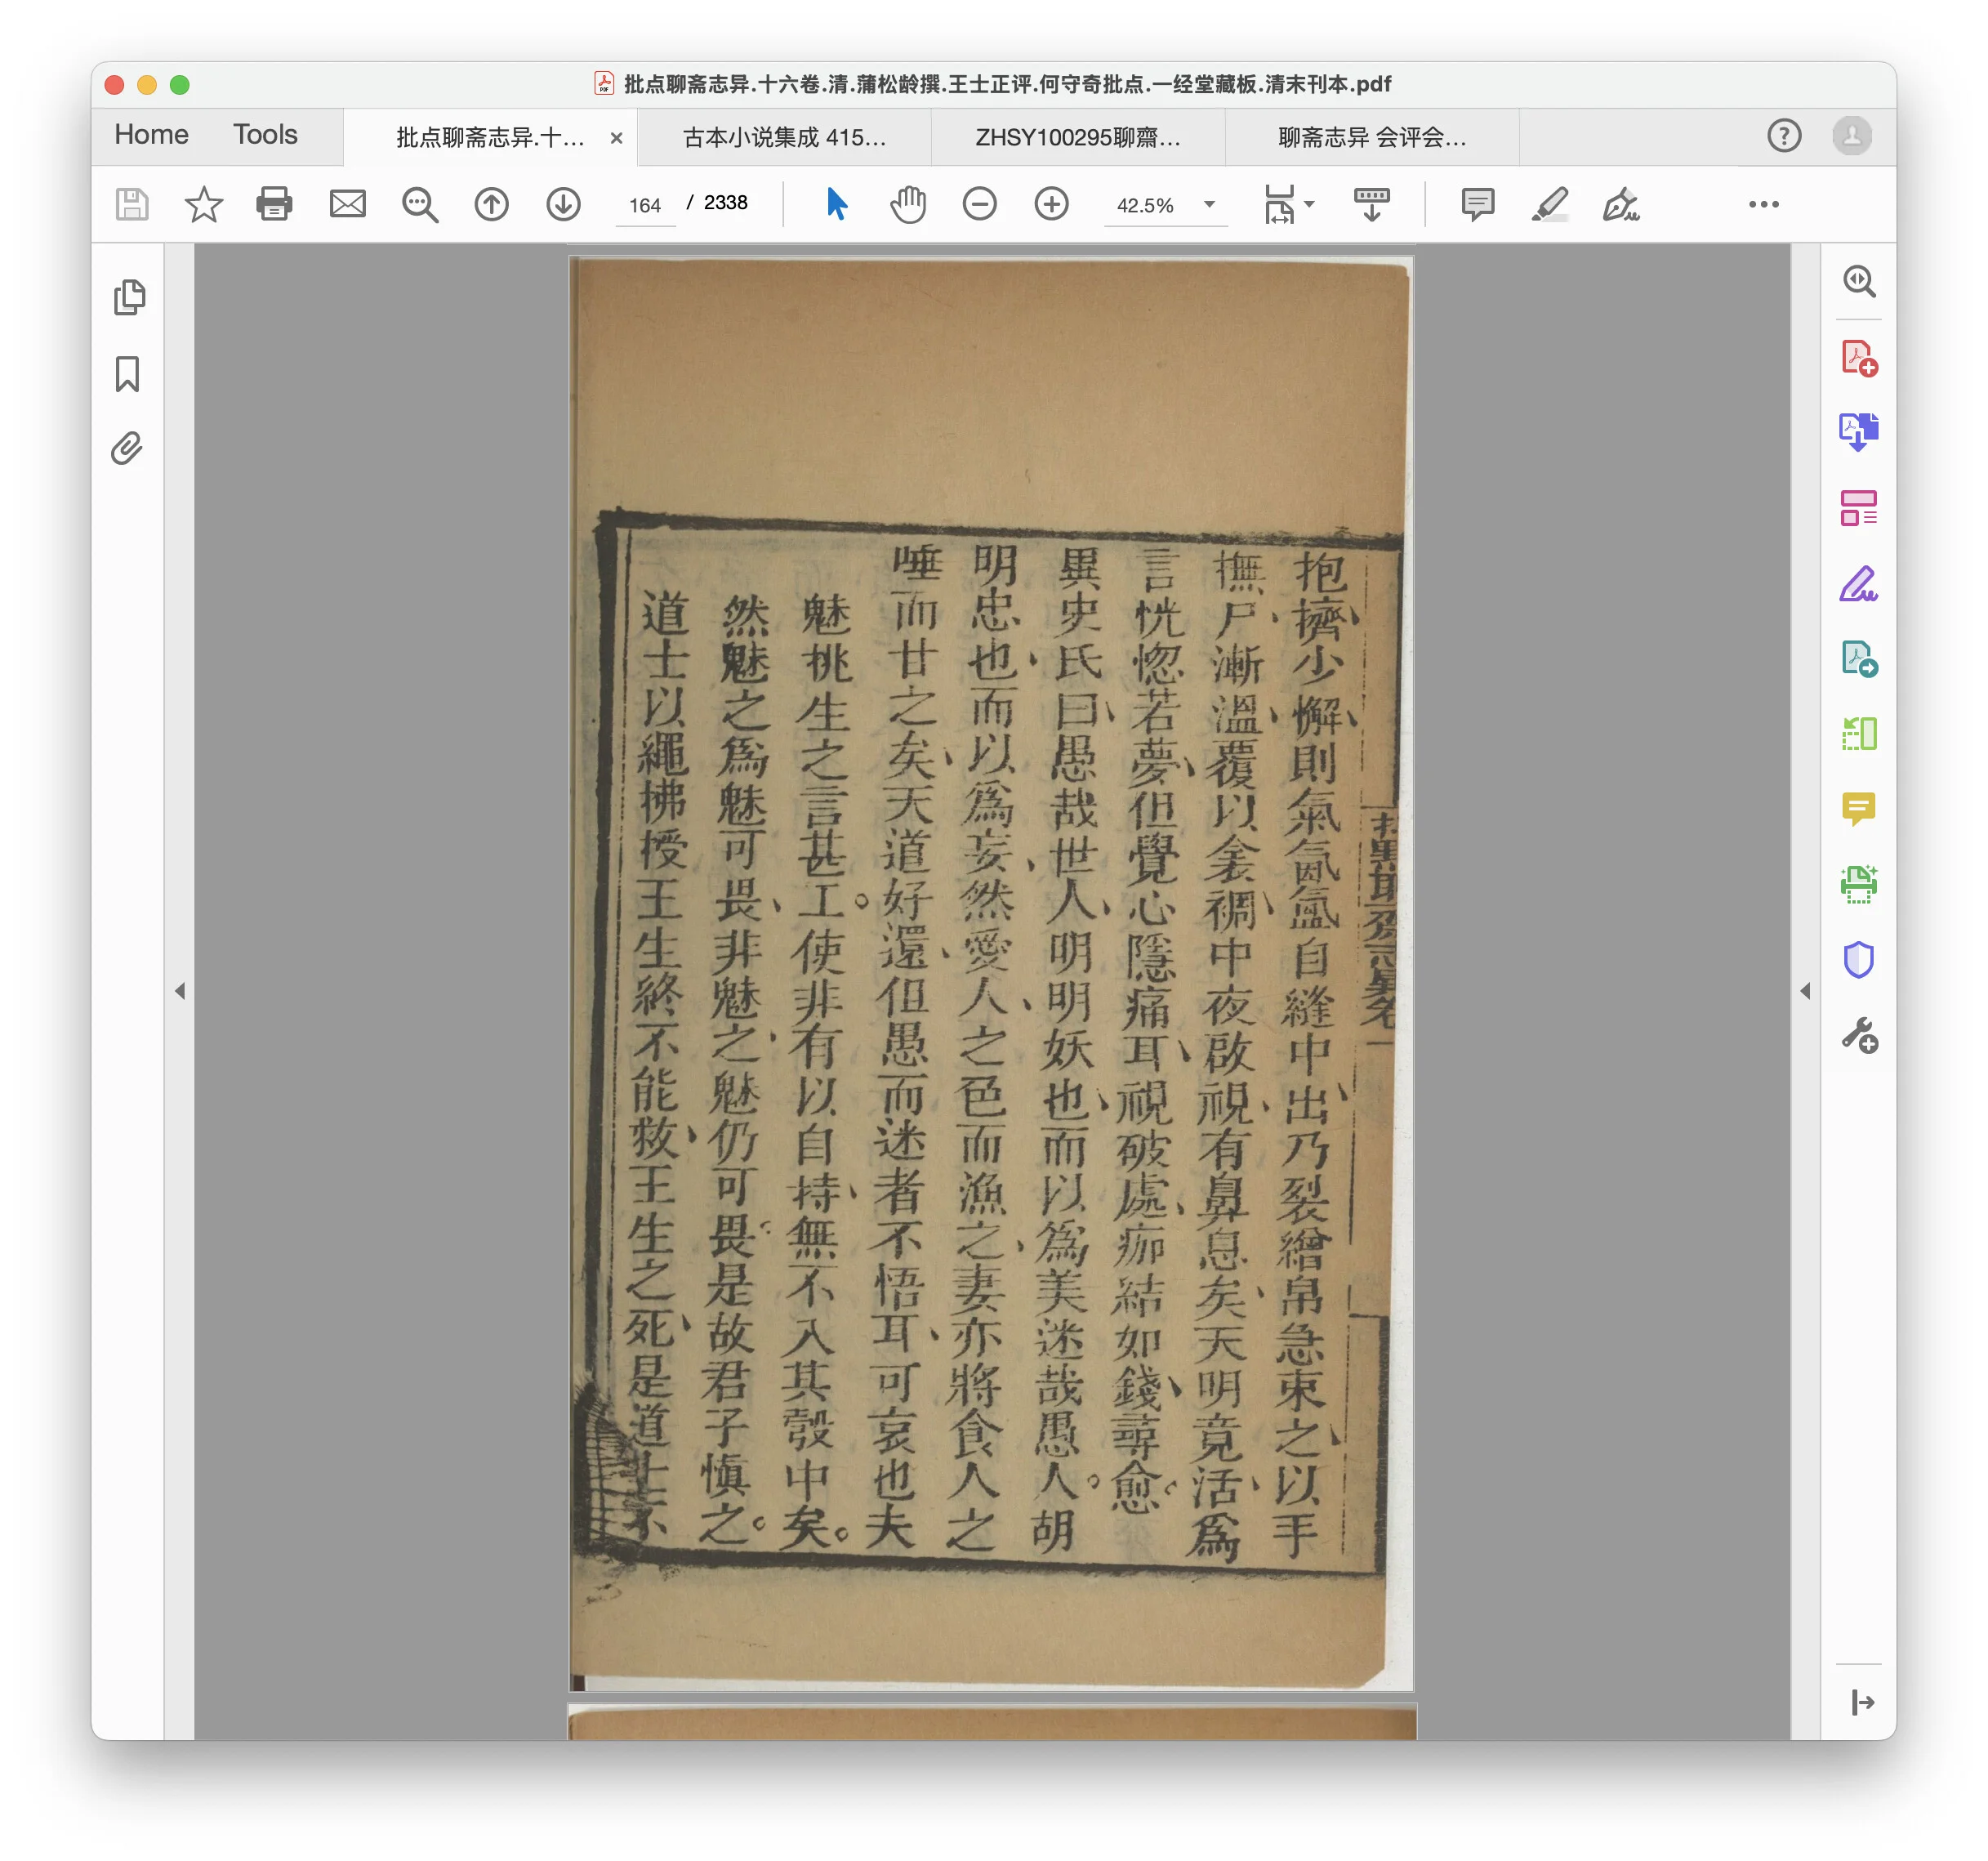 批点聊斋志异.十六卷.清.蒲松龄撰.王士正评.何守奇批点.一经堂藏板.清末刊本.pdf
Home Tools 批点聊斋志异.十... × 古本小说集成 415... ZHSY100295聊齋... 聊斋志异 会评会...
164 / 2338 42.5%
抱擠少懈、則氣氤氳自縫中出、乃裂繒帛急束之、以手
撫尸、漸溫、覆以衾裯、中夜啟視、有鼻息矣、天明竟活、爲
言恍惚若夢、但覺心隱痛耳、視破處、痂結如錢、尋愈。
異史氏曰、愚哉世人、明明妖也、而以爲美迷哉愚人。胡
明忠也、而以爲妄、然愛人、之色而漁之、妻亦將食人之
唾而甘之矣、天道好還、但愚而迷者不悟耳、可哀也夫
魅挑生之言甚工。使非有以自持、無不入其彀中矣。
然魅之爲魅可畏、非魅之、魅仍可畏。是故君子慎之。
道士以繩拂授王生終不能救、王生之死、是道士不
批點聊齋志異卷一